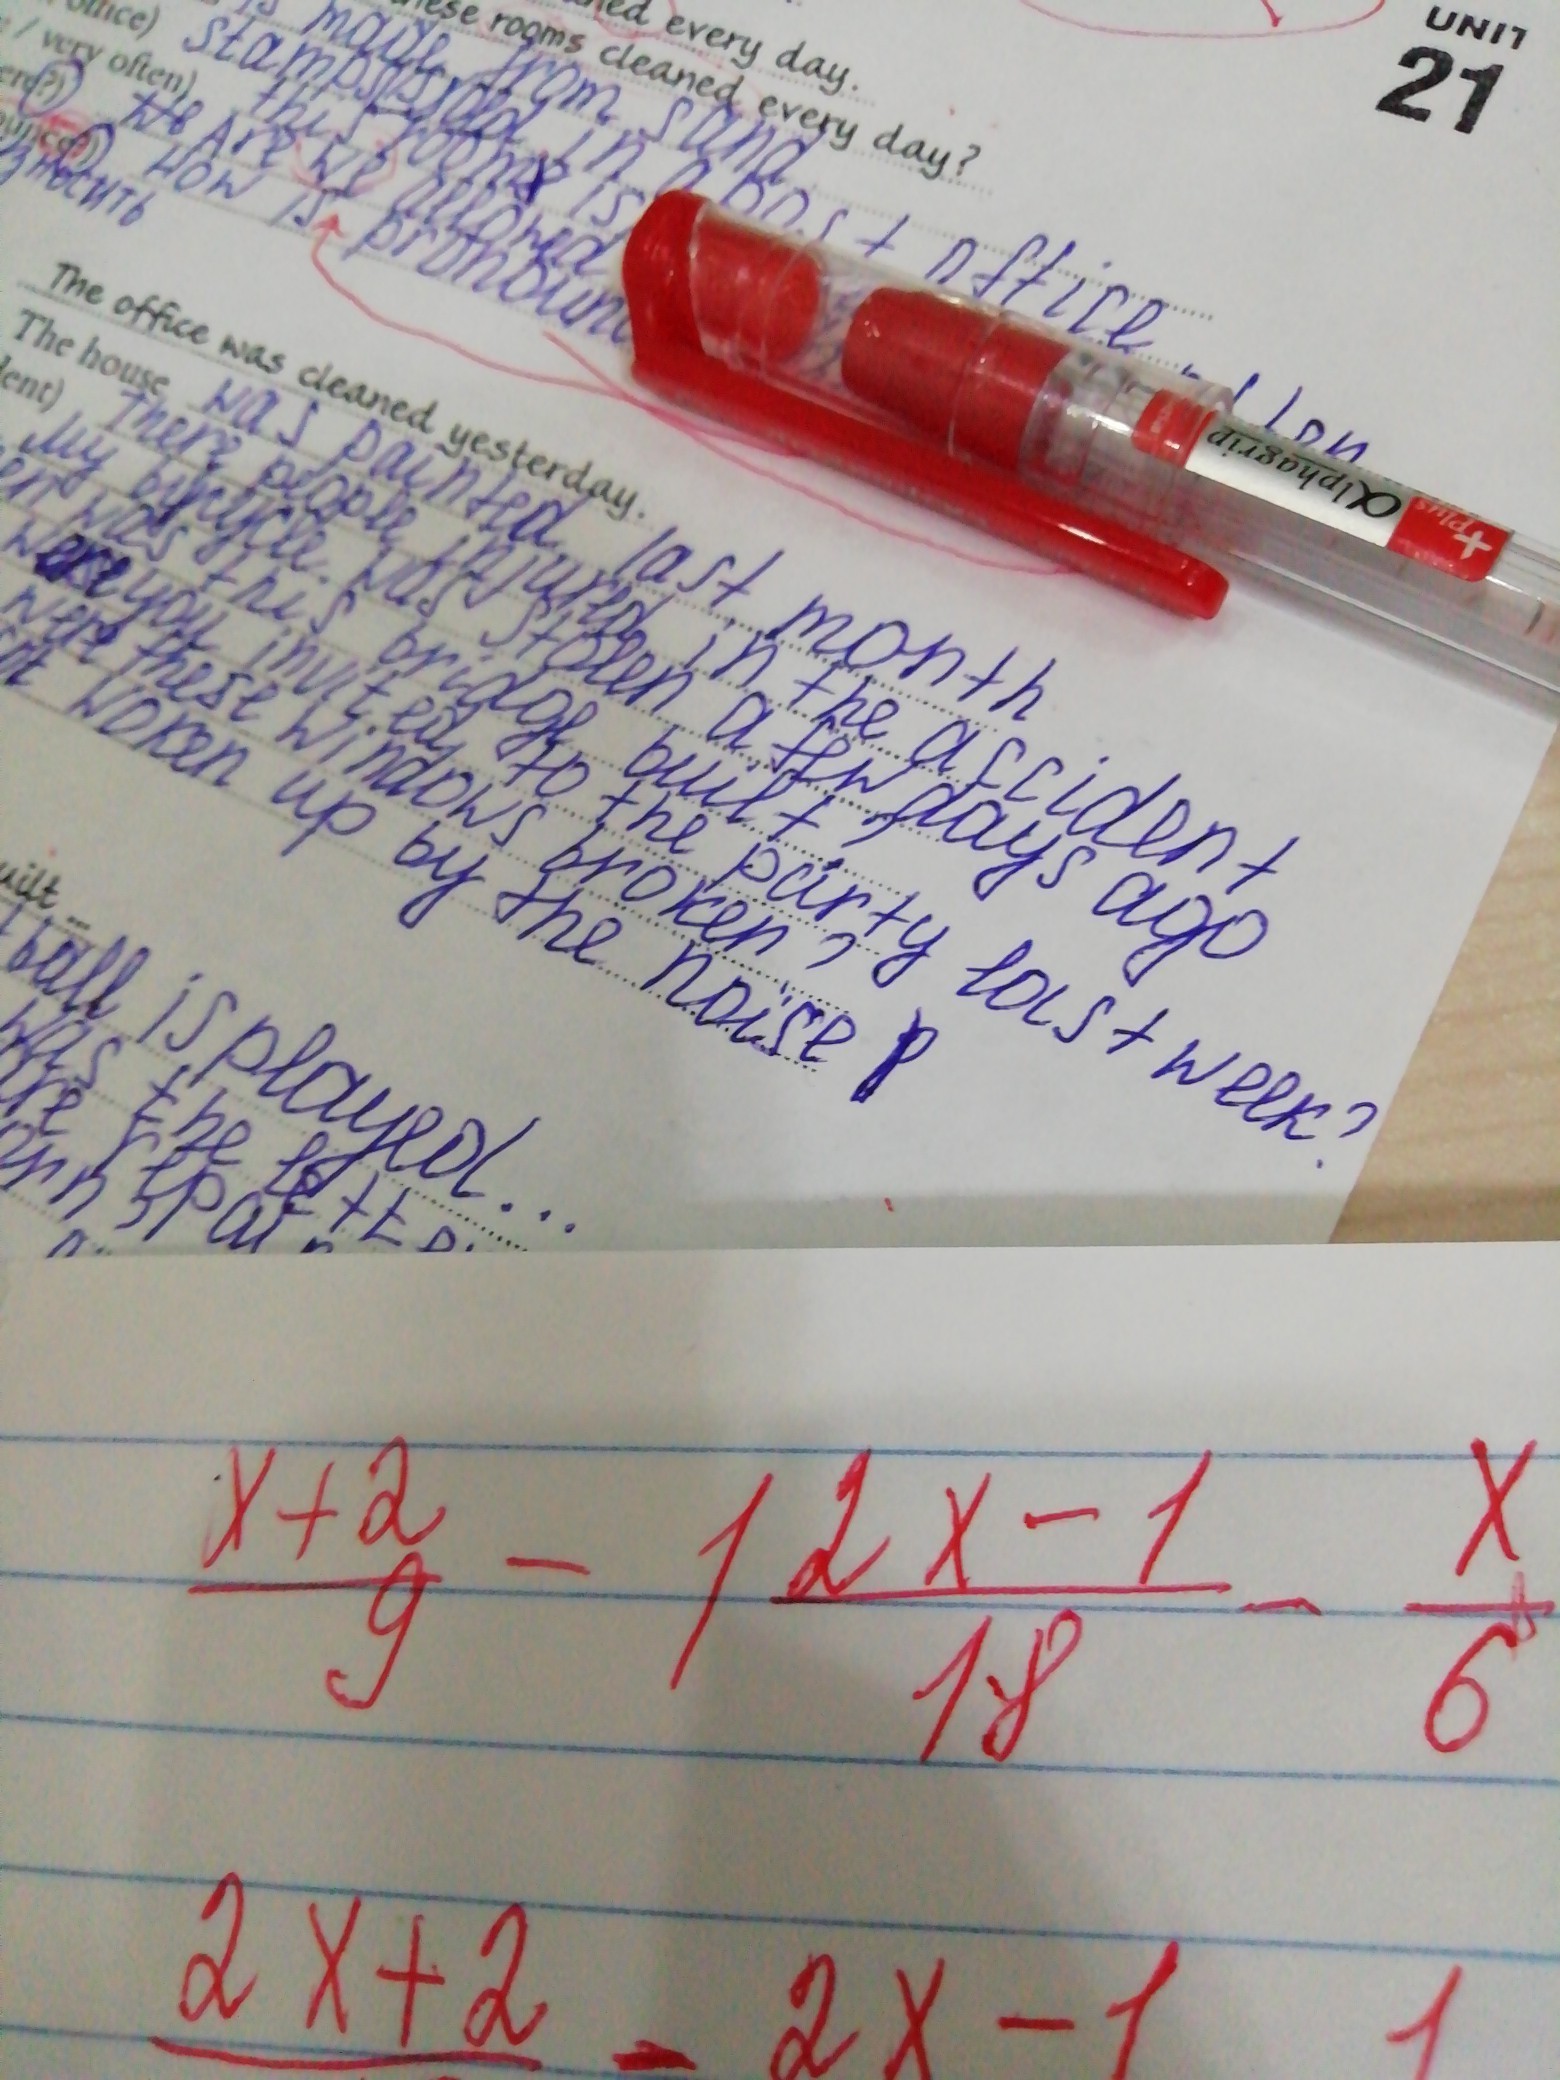 UNIT
21
ned every day.
these rooms cleaned every day?
office) is made from sand
/ very often) stamps sold in a post office
this rooms is
Are we allowed
How is pronoun
зносить
The office was cleaned yesterday.
The house was painted last month
dent) There people injured in the accident
My bycycle. was stolen a few days ago
en was this bridge built?
were you invited to the party last week?
were these windows broken?
woken up by the noise
uilt ...
ball is played...
was the
αlphagrip
+plus
x+2/9 - 1 2x-1/18 - x/6
2x+2 - 2x-1 1